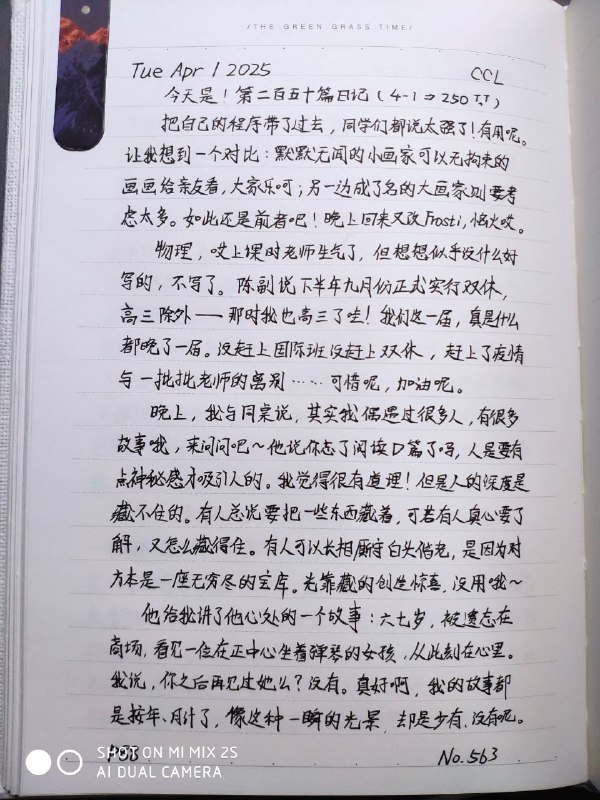 /THE GREEN GRASS TIME/
Tue Apr 1 2025 CCL
今天是！第二百五十篇日记（4-1⇒250 T.T）
把自己的程序带了过去，同学们都说太强了！有用呢。
让我想到一个对比：默默无闻的小画家可以无拘束的
画画给亲友看，大家乐呵；另一边成了名的大画家则要考
虑太多。如此还是前者吧！晚上回来又改Frosti，恼火哎。
物理，哎上课时老师生气了，但想想似乎没什么好
写的，不写了。陈副说下半年九月份正式实行双休，
高三除外——那时我也高三了哇！我们这一届，真是什么
都晚了一届。没赶上国际班没赶上双休，赶上了疫情
与一批批老师的离别……可惜呢，加油呢。
晚上，我与同桌说，其实我偶遇过很多人，有很多
故事哦，来问问吧～他说你忘了阅读D篇了吗，人是要有
点神秘感才吸引人的。我觉得很有道理！但是人的深度是
藏不住的。有人总说要把一些东西藏着，可若有人真心要了
解，又怎么藏得住。有人可以长相厮守白头偕老，是因为对
方本是一座无穷尽的宝库。光靠藏的创造惊喜，没用哦～
他给我讲了他心处的一个故事：六七岁，被遗忘在
商场，看见一位在正中心坐着弹琴的女孩，从此刻在心里。
我说，你之后再见过她么？没有。真好啊，我的故事都
是按年、月计了，像这种一瞬的光景，却是少有、没有呢。
No.563
SHOT ON MI MIX 2S
AI DUAL CAMERA